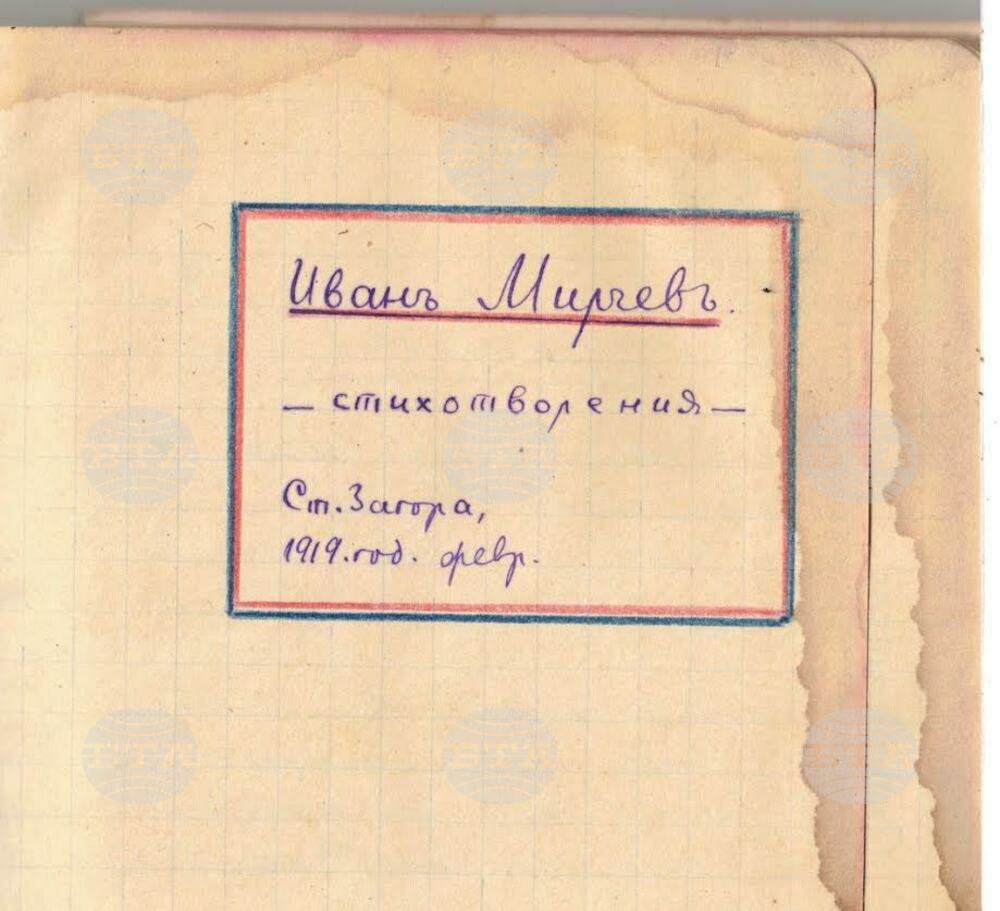 Иванъ Мирчевъ.
— стихотворения —
Ст. Загора,
1919. год. февр.
БТА БТА БТА
БТА БТА БТА
БТА БТА БТА